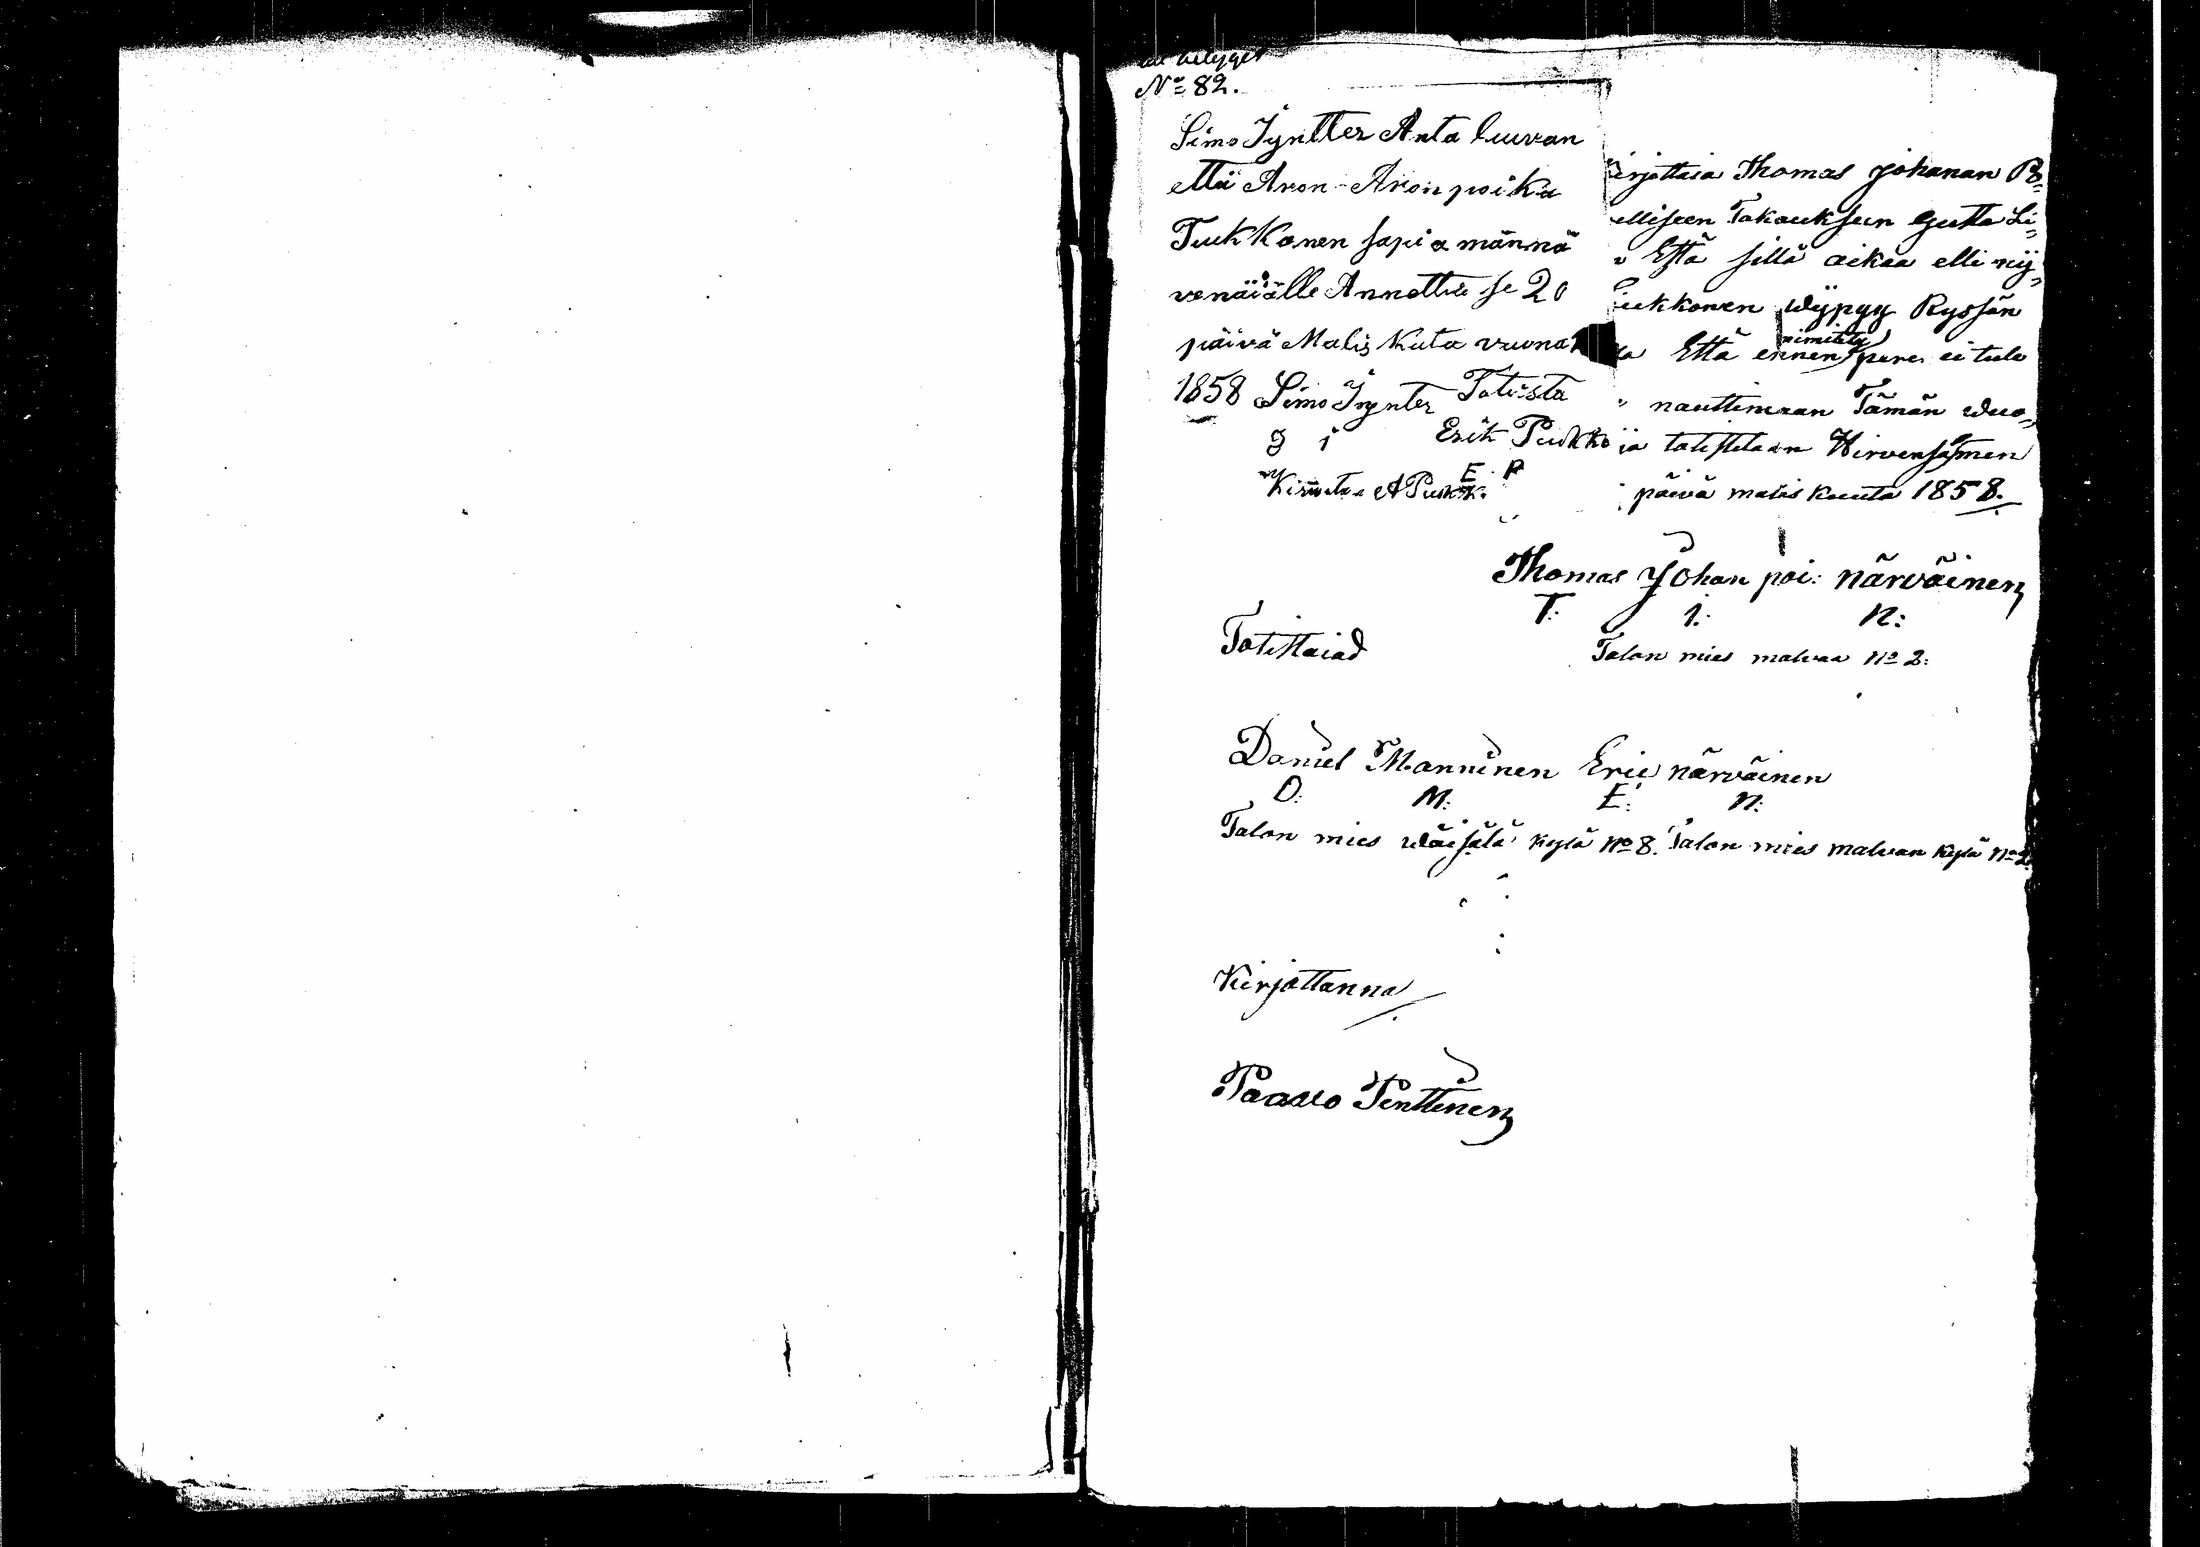 No 82.
Simo Jyntter Anta luvan
että Aron Aron poika
Tuckkonen sapia männä
venäiälle Annettu se 20
päivä Malis Kuta vuona
1858 Simo Jynter Totista
S i Erik Puekko
E. P
Kiruta A Puekk:
irjottaia Thomas Johanan Po=
elliseen Takaukseen Gutta Li=
Että sillä aikaa elli nij=
uekkonen wijpyy Ryssän
nimitetty
Että ennen peri ei tule
nauttimaan Tämän wuo=
ja totistetaan Hirvensalmen
päivä malis kuuta 1858.
Thomas Johan poi: närwäinen
T: J: N:
Totittaiad
Talon mies malvaa No 2:
Daniel Manninen Eric närwäinen
D: M: E: N:
Talon mies wäisälä kylä No 8. Talon mies malvan kylä No 2.
Kirjottanna
Paavo Penttinen